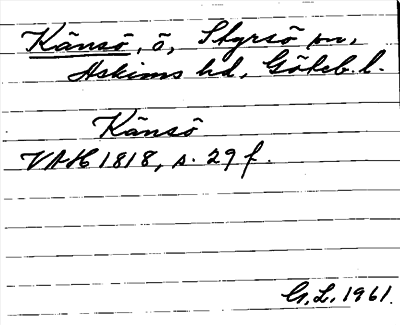 Känsö, ö, Styrsö sn,
Askims hd, Göteb. l.
Känsö
VAH 1818, s. 29 f.
G.L. 1961.